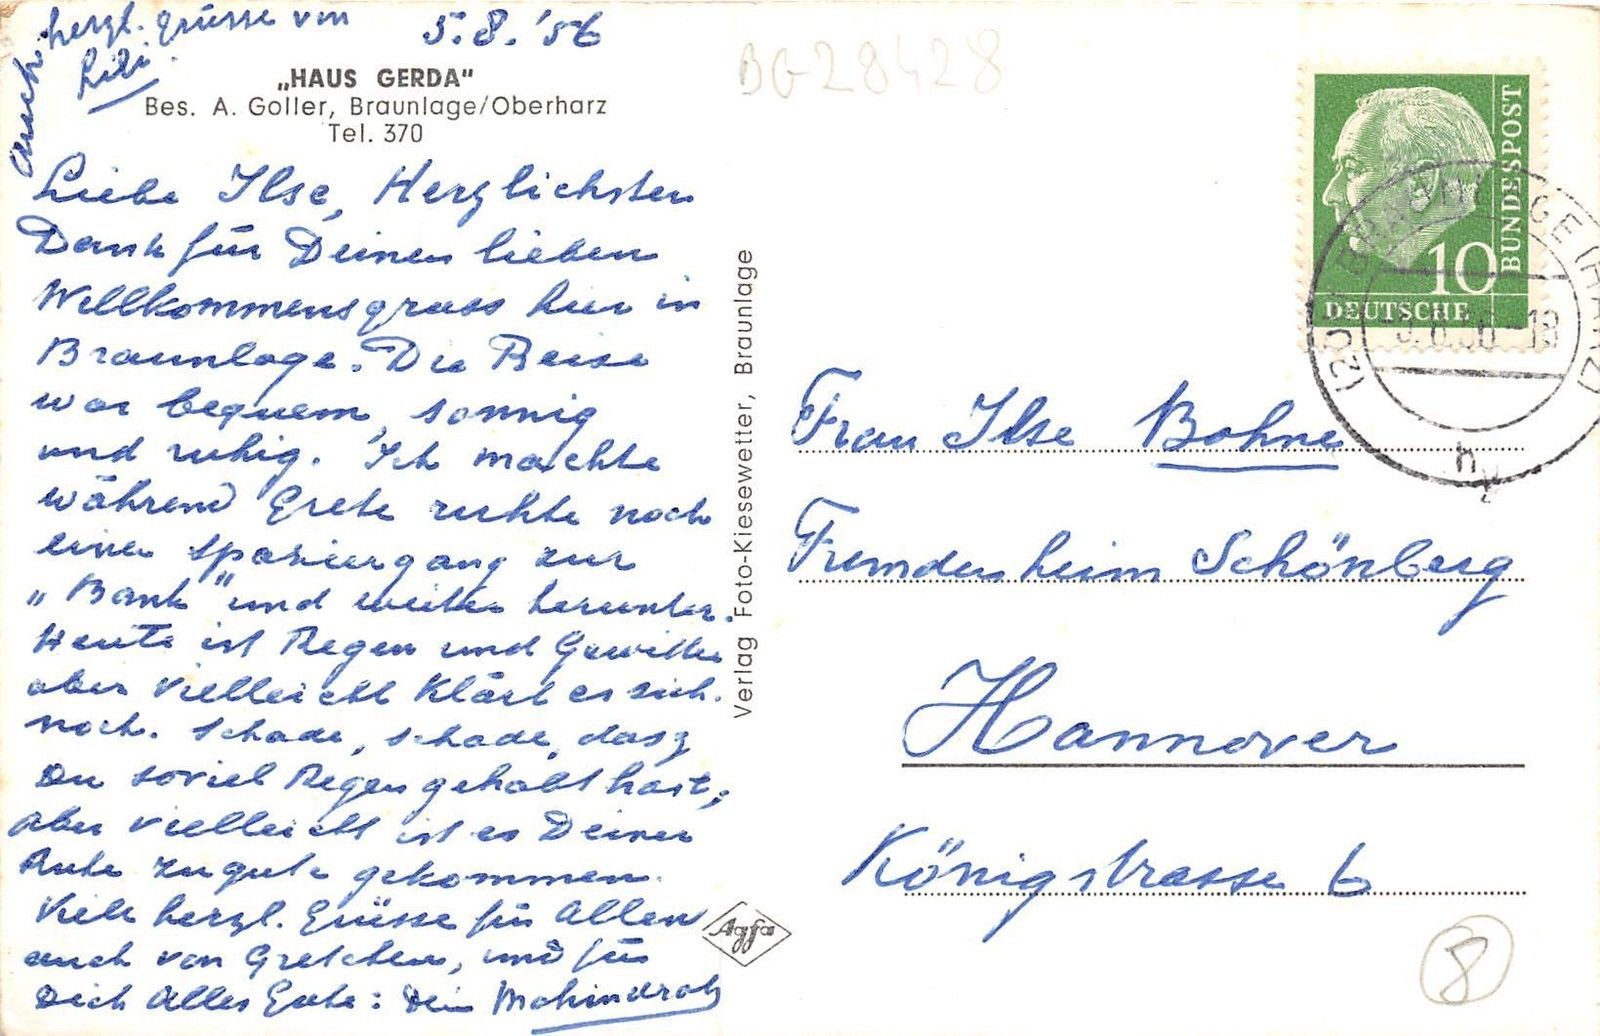 auch herzl. grüsse von
Lili.
5.8.'56
„HAUS GERDA"
Bes. A. Goller, Braunlage/Oberharz
Tel. 370
Liebe Ilse, Herzlichsten
Dank für Deinen lieben
Willkommensgruss hier in
Braunlage. Die Reise
war bequem, sonnig
und ruhig. Ich machte
während Grete ruhte noch
einen Spaziergang zur
„Bank" und weiter herunter.
Heute ist Regen und Gewitter
aber vielleicht klärt es sich.
noch. Schade, schade, dasz
Du soviel Regen gehabt hast,
aber vielleicht ist es Deiner
Ruhe zugute gekommen.
Viele herzl. Grüsse für Allen
auch von Gretchen, und für
Dich Alles Gute: Dein
BG28428
DEUTSCHE BUNDESPOST
10
BRAUNLAGE (HARZ)
Verlag Foto-Kiesewetter, Braunlage
Agfa
Frau Ilse Bohne
Fremdenheim Schönberg
Hannover
Königstrasse 6
8